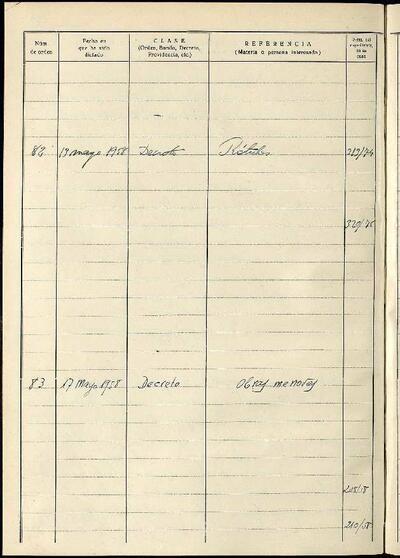 Núm. de orden
Fecha en que ha sido dictado
CLASE
(Orden, Bando, Decreto, Providencia, etc.)
REFERENCIA
(Materia o persona interesada)
82 13 mayo 1958 Decreto Rótulos 213/74
320/75
83 17 Mayo 1958 Decreto Obras menores
210/58